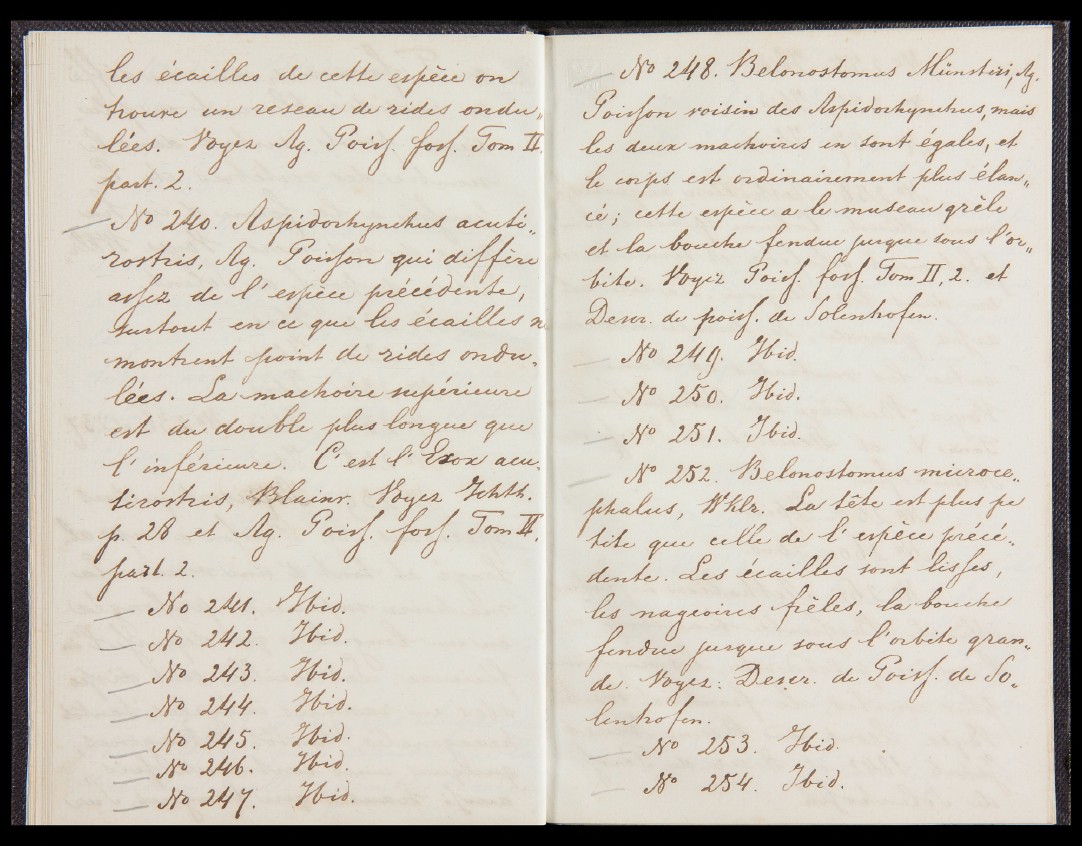 les écailles de cette espèce on
trouve un reseau de rides ondu„
lées. Voyez Ag. Poiss. foss. Tom II.
part. 2.
— No 240. Aspidorhynchus acuti„
rostris, Ag. Poisson qui diffère
assez de l'espèce précédente,
surtout en ce que les écailles n
montrent point de rides ondu„
lées. La machoire supérieure
est du double plus longue que
l'inférieure. C'est l'Esox acu„
tirostris, Blainv. Voyez Ichth.
p. 28 et Ag. Poiss. foss. Tom II,
part. 2.
— No 241. Ibid.
— No 242. Ibid.
— No 243. Ibid.
— No 244. Ibid.
— No 245. Ibid.
— No 246. Ibid.
— No 247. Ibid.
— No 248. Belonostomus Münsteri, Ag.
Poisson voisin des Aspidorhynchus, mais
les deux machoires en sont égales, et
le corps est ordinairement plus élan„
cé; cette espèce a le museau grèle
et la bouche fendue jusque sous l'or„
bite. Voyez Poiss. foss. Tom II, 2. et
Descr. de poiss. de Solenhofen.
— No 249. Ibid.
— No 250. Ibid.
— No 251. Ibid.
— No 252. Belonostomus microce„
phalus, Wklr. La tête est plus pe
tite que celle de l'espèce précé„
dente. Les écailles sont lisses,
les nageoires frèles, la bouche
fendue jusque sous l'orbite gran„
de. Voyez: Descr. de Poiss. de So„
lenhofen.
— No 253. Ibid.
— No 254. Ibid.